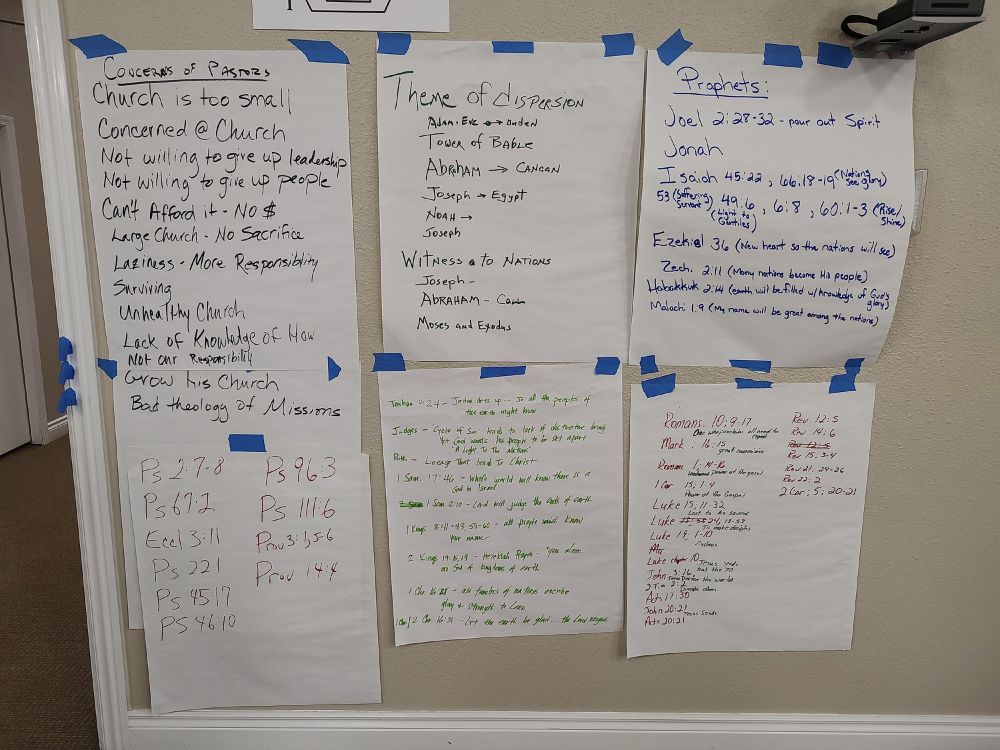 Concerns of Pastors
Church is too small
Concerned @ Church
Not willing to give up leadership
Not willing to give up people
Can't Afford it - No $
Large Church - No Sacrifice
Laziness - More Responsiblity
Surviving
Unhealthy Church
Lack of Knowledge of How
Not our Responsibility
Grow his Church
Bad theology of Missions
Theme of Dispersion
Adam-Eve
Tower of Bable
Abraham → Canaan
Joseph → Egypt
Noah →
Joseph
Witness to Nations
Joseph -
Abraham -
Moses and Exodus
Prophets:
Joel 2:28-32 - pour out Spirit
Jonah
Isaiah 45:22, 66:18-19 (Nations see glory)
53 (Suffering Servant) 49:6 (Light to Gentiles), 6:8, 60:1-3 (Rise/Shine)
Ezekiel 36 (New heart so the nations will see)
Zech. 2:11 (Many nations become His people)
Habakkuk 2:14 (earth will be filled w/ knowledge of God's glory)
Malachi 1:9 (My name will be great among the nations)
Ps 2:7-8
Ps 67:2
Eccl 3:11
Ps 22
Ps 45:17
Ps 46:10
Ps 96:3
Ps 111:6
Prov 3:1,5-6
Prov 14:4
Joshua 4:24 - Jordan dries up... so all the peoples of
the earth might know
Judges - Cycle of Sin leads to lack of
Yet God wants his people to be set apart
"A Light To The Nations"
Ruth - Lineage That leads To Christ
1 Sam. 17:46 - Whole world will know there is a
God in Israel
1 Sam 2:10 - Lord will judge the ends of earth
1 Kings 8:41-43, 59-60 - all people would know
your name
2 Kings 19:15,19 - Hezekiah Prayer - "you alone
are God of kingdoms of earth
1 Chr 16:28 - all families of nations ascribe
glory & strength to Lord
2 Chr. 16:31 - Let the earth be glad... the Lord reigns
Romans 10:9-17
Mark 16:15
great commission
Romans 1:14-16
power of the gospel
1 Cor 15:1-4
Power of the Gospel
Luke 15:11-32
Lost to be saved
Luke 24
To make disciples
Luke 19:1-10
Luke chapter 10 Jesus sends
out the 70
John 3:16 for the world
2 Tim 2:2
Acts 17:30
John 20:21
Jesus sends
Acts 20:21
Rev 12:5
Rev 14:6
Rev 15:3-4
Rev 21:24-26
Rev 22:2
2 Cor: 5:20-21